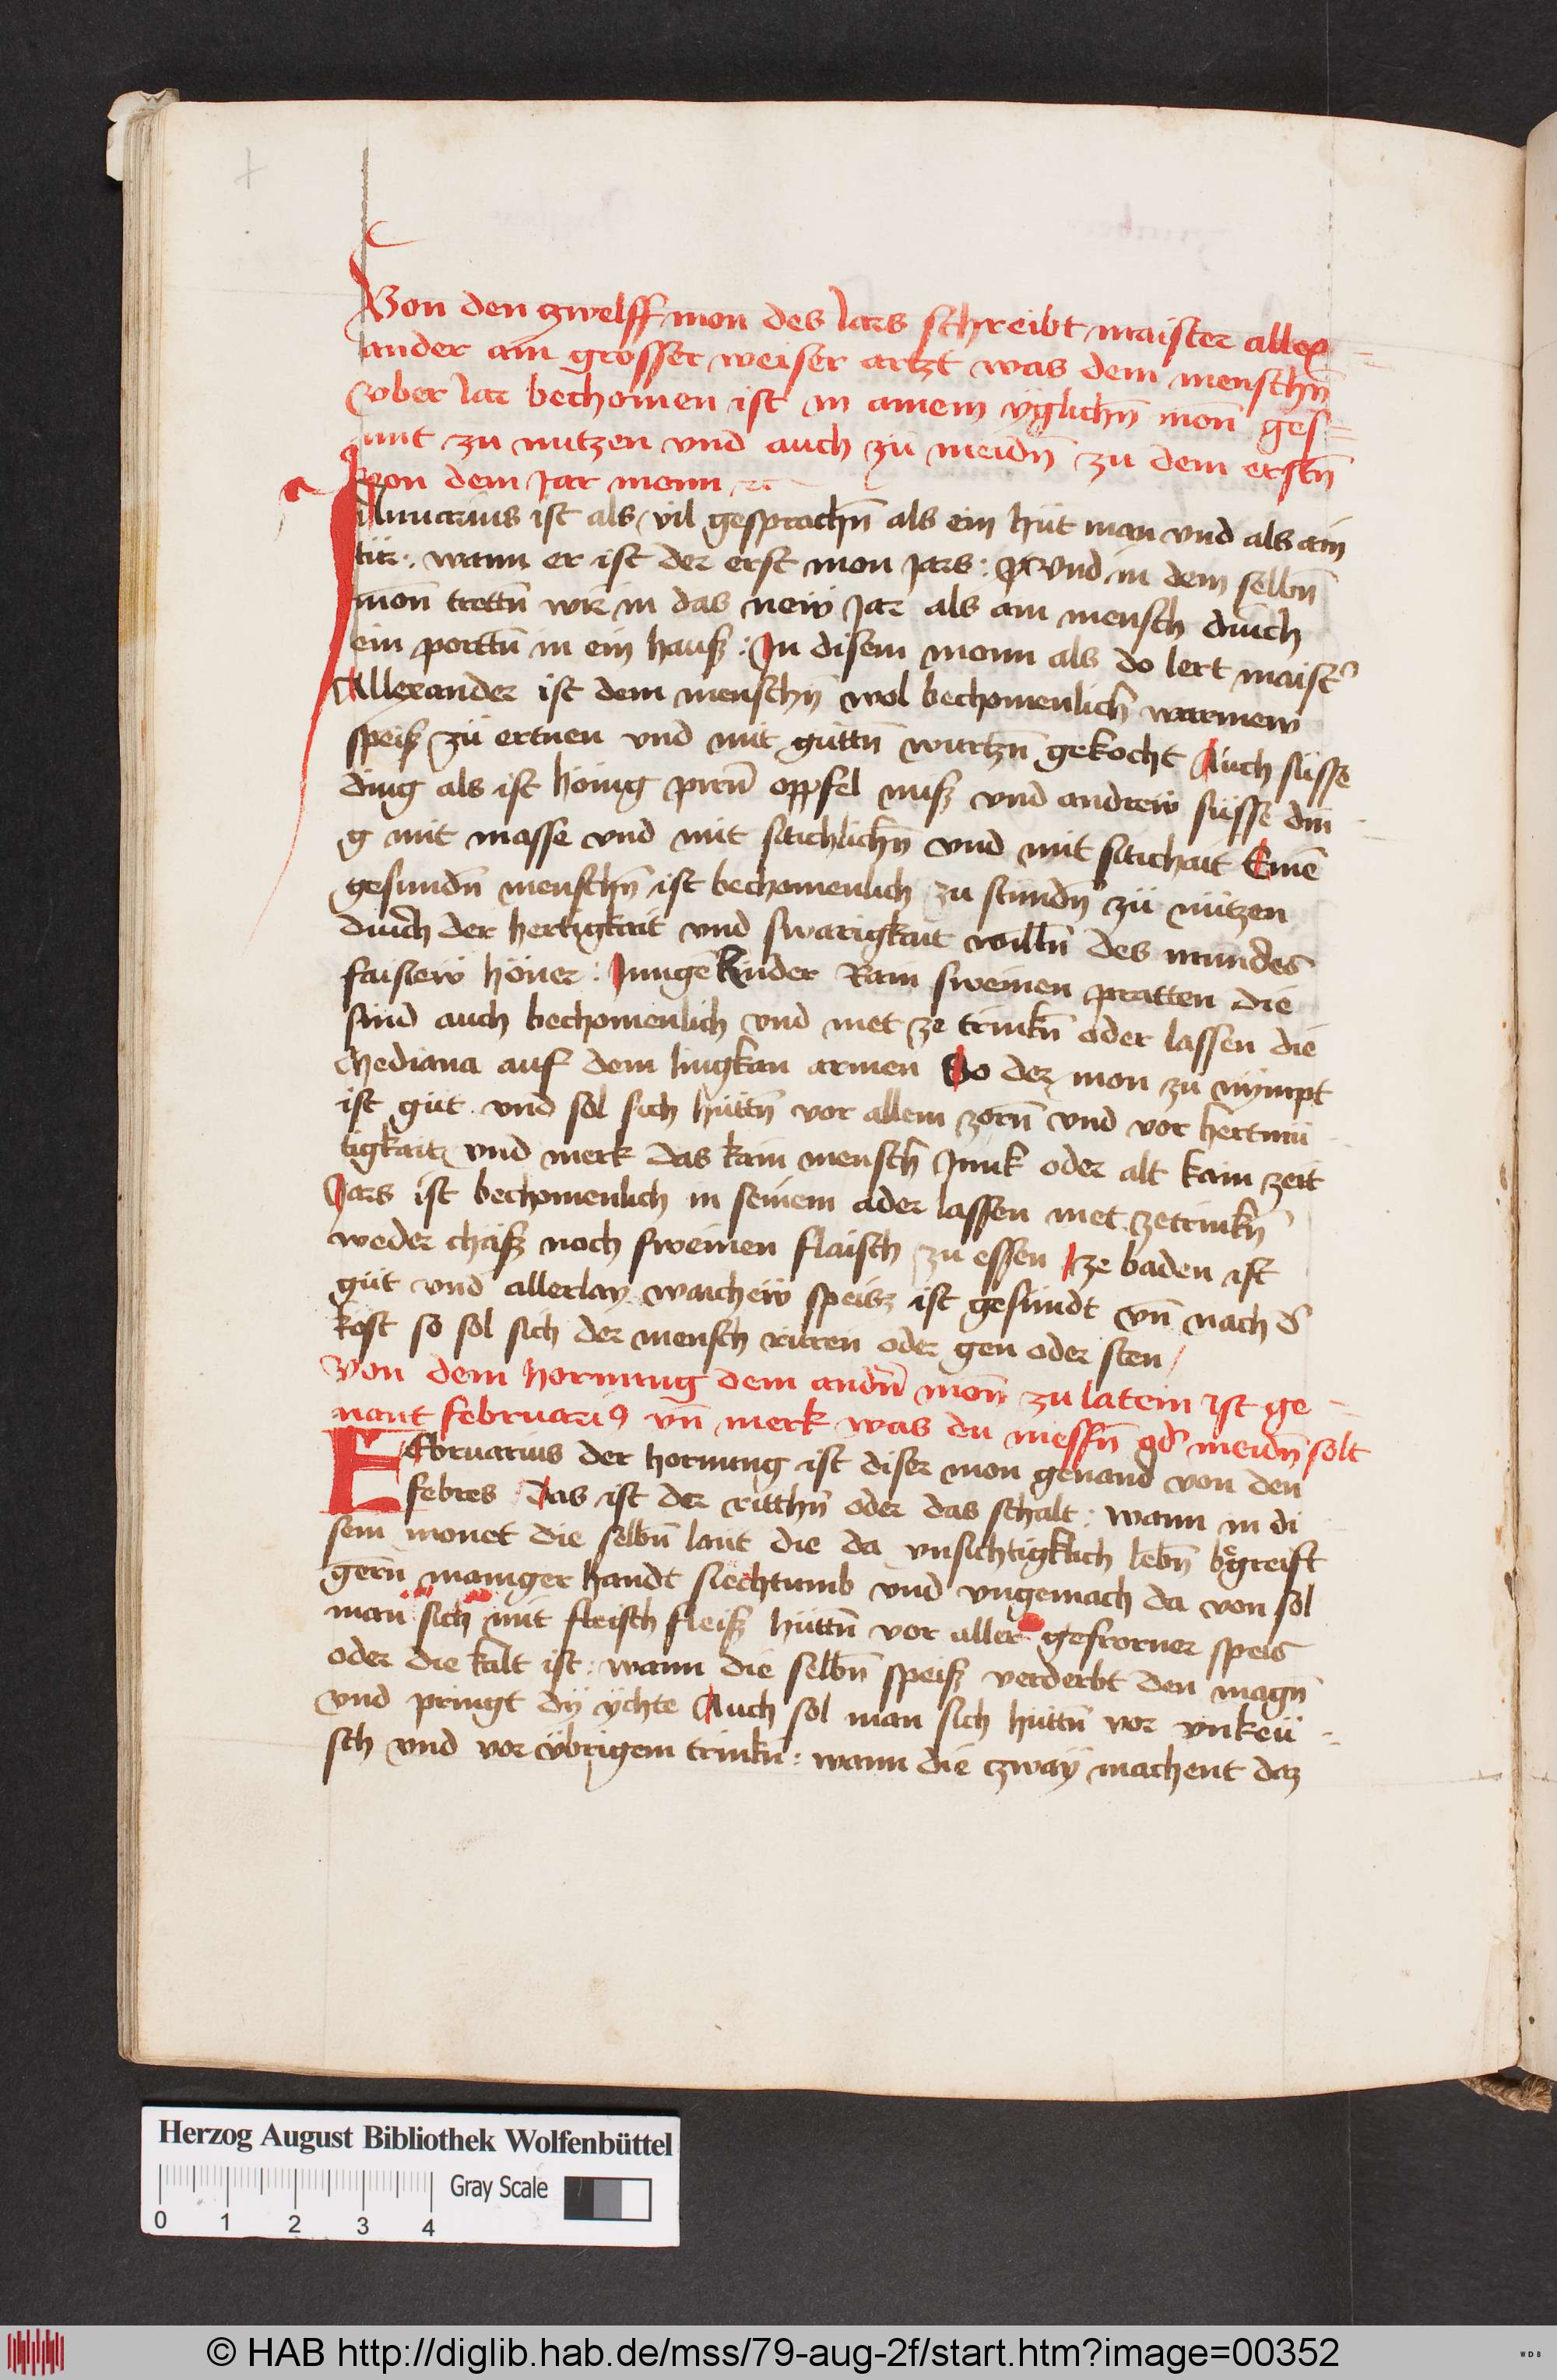 Von den zwelff mon des Jars schreibt maister allex=
ander ain grosser weiser artzt was dem menschn̄
vber Jar bechomen ist in ainem yglichn̄ mon̄ ges=
unt zu nutzen vnd auch zü meidn̄ zu dem erstn̄
von dem Jar monn
JAnuarius ist als vil gesprachn̄ als ein hüt man vnd als ain
tür: wann er ist der erst mon Jars: vnd in dem selbn̄
mon̄ trettn̄ wir in das new Jar als ain mensch durch
ein porttn̄ in ein hauß: In disem monn als do lert maist'
Allexander ist dem menschn̄ wol bechomenlich warmew
speiß zü ertnen vnd mit güttn̄ wurtzn̄ gekocht Auch süsse
ding als ist hönig pirn̄ oppfel nuß vnd andrew süsse din
g mit masse vnd mit sitichlichn̄ vnd mit sitichait Einē
gesundn̄ menschn̄ ist bechomenlich zu stundn̄ zü nützen
durch der hertigkait vnd swarigkait willn̄ des mundes
faistew höner: Junge Rinder Rain sweinen pratten die
sind auch bechomenlich vnd met ze trinkn̄ oder lassen die
Mediana auf dem lingkan armen So der mon zu nympt
ist güt vnd sol sich hüttn̄ vor allem zorn̄ vnd vor hertmü
tigkait vnd merk das kain mensch Junk oder alt kain zeit
Jars ist bechomenlich in seinem ader lassen met zetrinkn̄
weder chäß noch sweinen flaisch zu essen ze baden ist
güt vnd allerlay waichew speisz ist gesundt vn̄ nach d'
kost so sol sich der mensch rüren oder gen oder sten
Von dem hornung dem andn̄ mon̄ zu latein ist ge=
nant februari9 vn̄ merk was du niessn̄ od' meidn̄ solt
FEbruarius der hornung ist diser mon genand von den
febres das ist der ritthn̄ oder das schalt: wann in di
sem monet die selbn̄ laüt die da vnsichtigklich lebn̄ begreift
gern̄ maniger handt siechtumb vnd vngemach da von sol
man sich mit fleisch fleiß hüttn̄ vor aller gefrorner speis
oder die kalt ist: wann die selbn̄ speiß verderbt den magn̄
vnd pringt dÿ ychte Auch sol man sich hüttn̄ vor vnkeü=
sch vnd vor übrigem trinkn̄: wann die zwaÿ machent daz
Herzog August Bibliothek Wolfenbüttel
Gray Scale
0 1 2 3 4
© HAB http://diglib.hab.de/mss/79-aug-2f/start.htm?image=00352
WDB